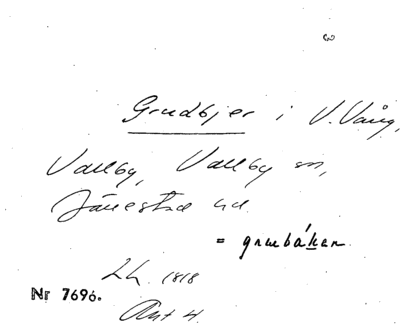 Grudbjer i V. Vång,
Vallby, Vallby sn,
Järrestad hd
= gruebáken
Lh. 1818
Nr 7696.
Akt 4